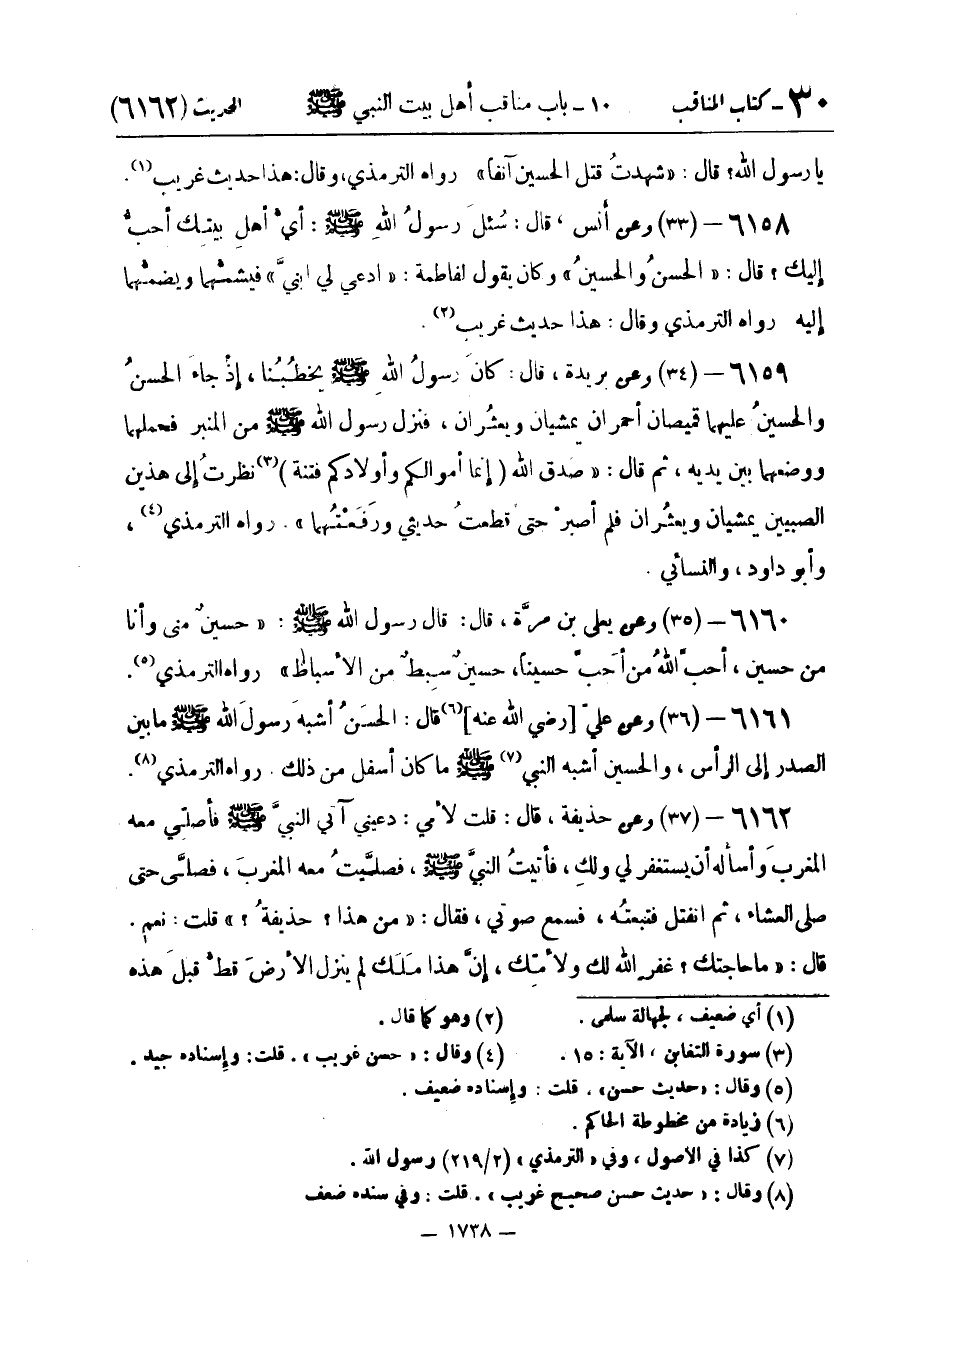 ٣٠ - كتاب المناقب ١٠ - باب مناقب أهل بيت النبي ﷺ الحديث (٦١٦٢)
يا رسول الله؟ قال : «شهدتُ قتل الحسين آنفاً» رواه الترمذي، وقال: هذا حديث غريب(١).
٦١٥٨ – (٣٣) وعن أنس ، قال : سُئلَ رسولُ اللهِ ﷺ : أيُّ أهلِ بيتِكَ أحبُّ
إليك ؟ قال : « الحسنُ والحسينُ» وكان يقول لفاطمة : « ادعي لي ابنيَّ » فيشمُّهما ويضمُّهما
إليه رواه الترمذي وقال : هذا حديث غريب(٢) .
٦١٥٩ – (٣٤) وعن بريدة ، قال : كانَ رسولُ اللهِ ﷺ يخطُبُنا ، إذْ جاءَ الحسنُ
والحسينُ عليهما قميصان أحمران يمشيان ويعثُران ، فنزل رسول الله ﷺ من المنبر فحملهما
ووضعهما بين يديه ، ثم قال : « صدق الله ( إنما أموالكم وأولادكم فتنة )(٣) نظرتُ إلى هذين
الصبيين يمشيان ويعثُران فلم أصبرْ حتى قطعتُ حديثي ورَفَعْتُهما » . رواه الترمذي(٤) ،
وأبو داود ، والنسائي .
٦١٦٠ – (٣٥) وعن يعلى بن مرَّة ، قال: قال رسول الله ﷺ : « حسينٌ مني وأنا
من حسين ، أحبَّ اللهُ من أحبَّ حسيناً، حسينٌ سِبطٌ من الأسباط» رواه الترمذي(٥).
٦١٦١ – (٣٦) وعن عليّ [رضي الله عنه](٦) قال : الحسَنُ أشبهَ رسولَ الله ﷺ ما بين
الصدر إلى الرأس ، والحسين أشبه النبي(٧) ﷺ ما كان أسفل من ذلك . رواه الترمذي(٨).
٦١٦٢ – (٣٧) وعن حذيفة ، قال : قلت لأمي : دعيني آتي النبيَّ ﷺ فأصلّي معه
المغربَ وأسأله أن يستغفر لي ولكِ ، فأتيتُ النبيَّ ﷺ ، فصلَّيتُ معه المغربَ ، فصلَّى حتى
صلى العشاء ، ثم انفتل فتبعتُه ، فسمع صوتي ، فقال : « من هذا ؟ حذيفةُ ؟ » قلت : نعم .
قال : « ما حاجتك ؟ غفر الله لك ولأمّك ، إنَّ هذا مَلَك لم ينزل الأرضَ قطُّ قبلَ هذه
(١) أي ضعيف ، لجهالة سلمى . (٢) وهو كما قال .
(٣) سورة التغابن ، الآية : ١٥ . (٤) وقال : « حسن غريب » . قلت: وإسناده جيد .
(٥) وقال : «حديث حسن» . قلت : وإسناده ضعيف .
(٦) زيادة من مخطوطة الحاكم .
(٧) كذا في الأصول ، وفي « الترمذي » (٢١٩/٢) رسول الله .
(٨) وقال : « حديث حسن صحيح غريب » . قلت : وفي سنده ضعف
– ١٧٣٨ –